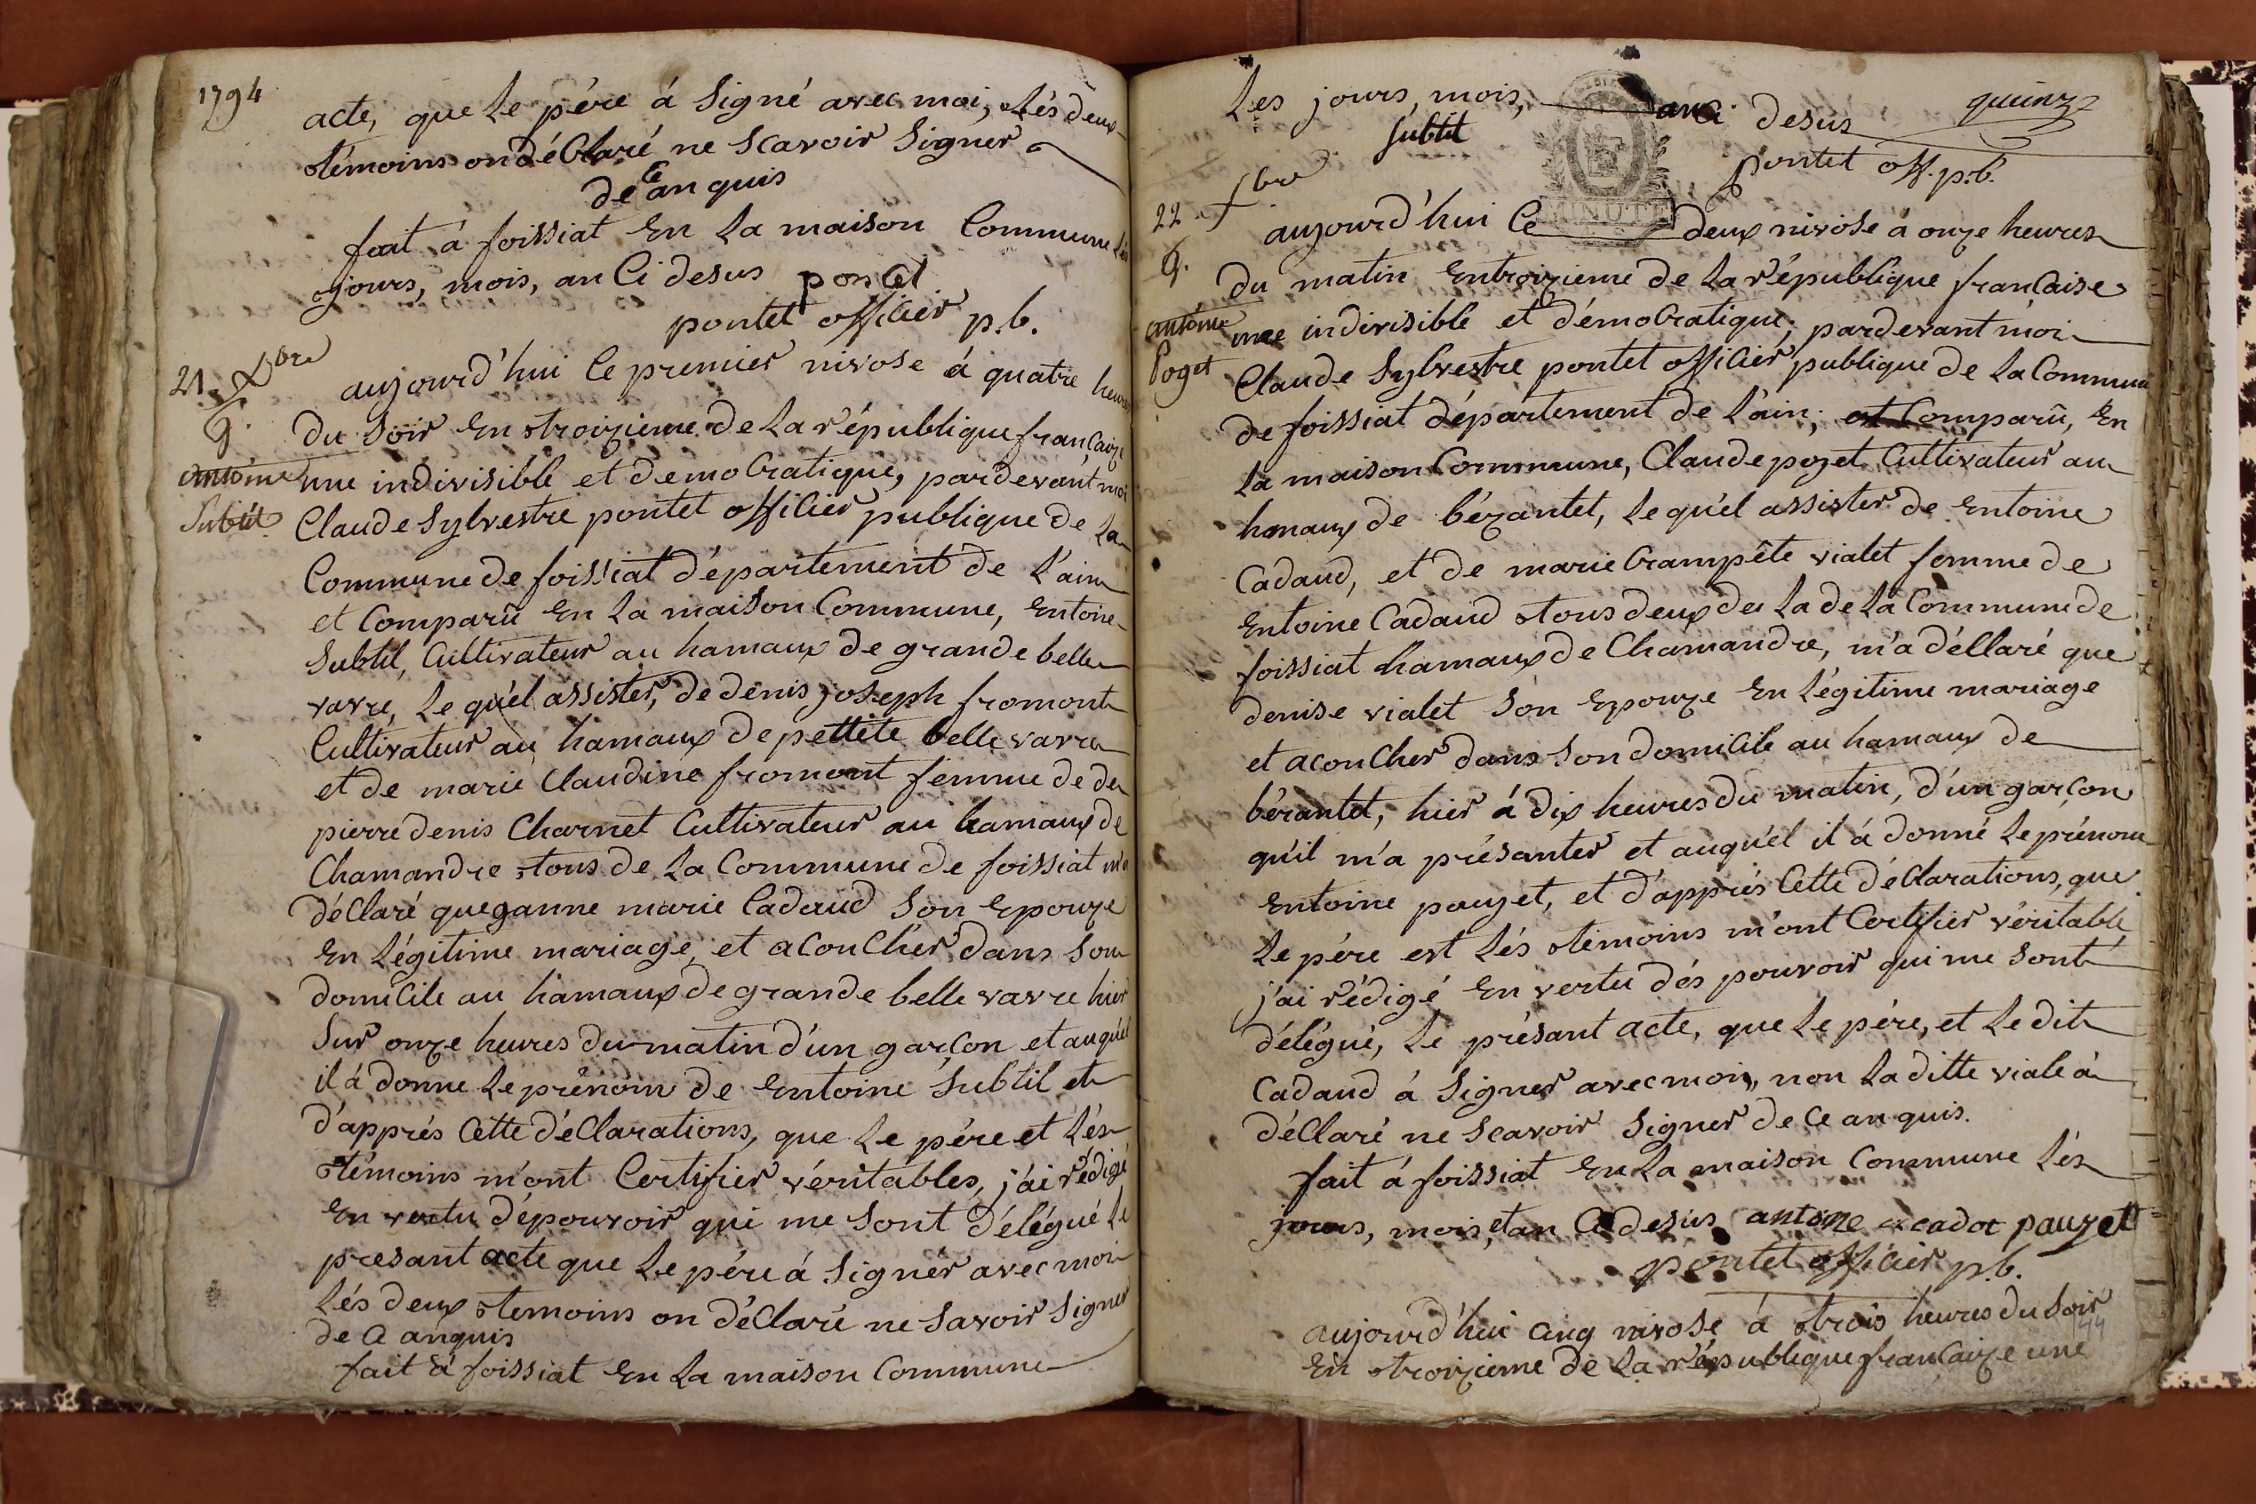 1794
acte, que Le pére á Signé avec moi, Lés deux
témoins on déClaré ne Scavoir Signer
de Ce an quis
fait á foissiat En La maison Commune Lés
jours, mois, an Ci desus poncet
pontet officier p.b.
21 Xbre
g.
antoine
Subtil
aujourd'hui Ce premier nivose á quatre heures
du Soir En troizieme de La république françaize
une indivisible et démoCratique, pardevant moi
Claude Sylvestre pontet officier publique de La
Commune de foissiat département de L'ain
et Comparû En La maison Commune, Entoine
Subtil, Cultivateur au hamaux de grande belle
vavre, Le quél assister, de denis joseph fromont
Cultivateur au hamaux de pettite belle vavre
et de marie Claudine fromont femme de de
pierre denis Charnet Cultivateur au hamaux de
Chamandre tous de La Commune de foissiat m'a
déClaré que janne marie Cadaud Son Epouze
En Légitime mariage, et aCouChér dans Son
domiCile au hamaux de grande belle vavre hier
Sur onze heures du matin d'un garÇon et auquél
il á donne Le prénom de Entoine Subtil et
d'apprés Cette déClarations, que Le pére et Lés
témoins m'ont Certifier véritables, j'ai rédigé
En vertu dépouvoir qui me Sont délégué Le
presant acte que Le pére á Signér avec moi
Lés deux temoins on déClaré ne Savoir Signer
de Ce anquis
fait á foissiat En La maison Commune
Les jours, mois, an Ci desus
quinze
Subtil
pontet off. p.b.
22 Xbre
g.
antoine
Poget
aujourd'hui Ce deux nivose á onze heures
du matin Entroizieme de La république francaise
une indivisible et démoCratique, pardevant moi
Claude Sylvestre pontet officier publique de La Commune
de foissiat département de L'ain, et Comparû, En
La maison Commune, Claude pozet Cultivateur au
hmaux de bézantet, Le quél assister de Entoine
Cadaud, et de marie Crampête vialet femme de
Entoine Cadaud tous deux de La de La Commune de
foissiat hamaux de Chamandre, m'a déClaré que
denise vialet Son Epouze En Légitime mariage
et aCouCher dans Son domiCile au hamaux de
bézantet, hier á dix heures du matin, d'un garÇon
qu'il m'a présanter et auquél il á donné Le prénom
Entoine pauzet, et d'apprés Cette déClarations, que
Le pére est Lés témoins m'ont Certifier véritable
j'ai rédigé En vertu dés pouvoir qui me Sont
délégué, Le présant acte, que Le pére, et Le dit
Cadaud á Signer avec moi, non La ditte viale á
déClaré ne Scavoir Signer de Ce an quis.
fait á foissiat En La maison Commune Lés
jours, mois, et an Ci desus antoine cadot pauzet
pontet officier p.b.
aujourd'hui cinq nivose á trois heures du Soir
En troizieme de La république françaize une